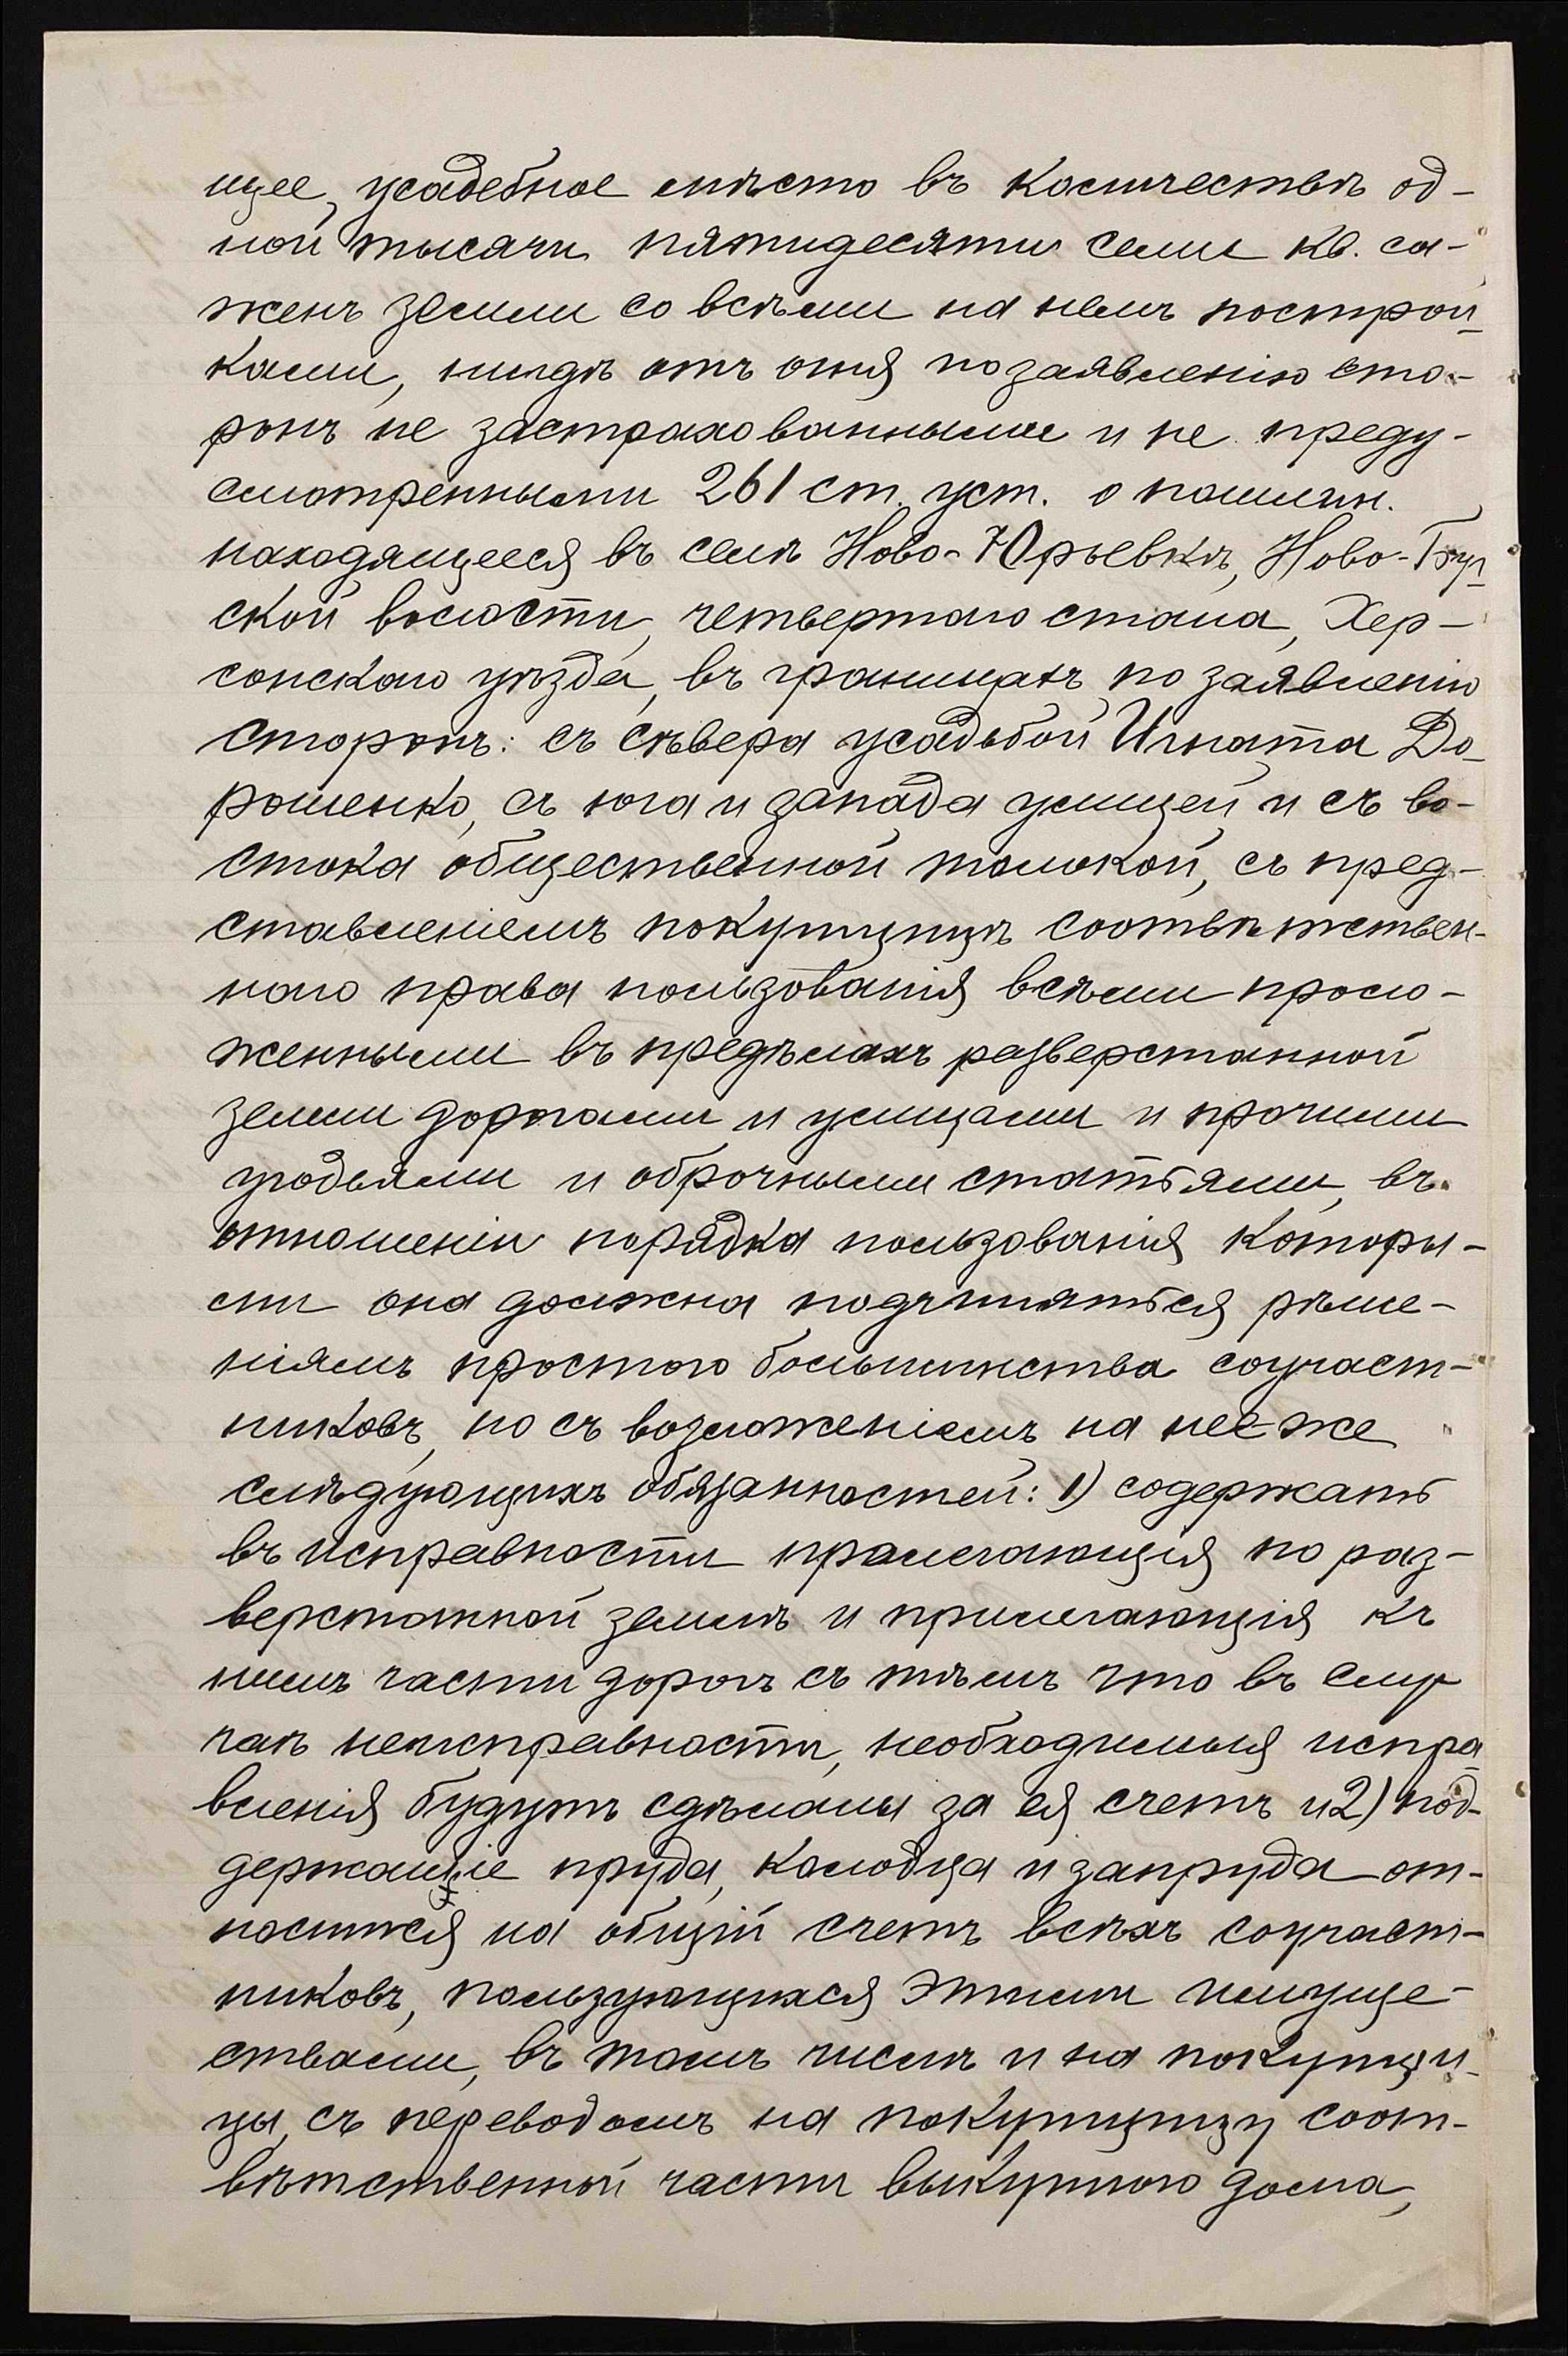 щее, усадебное мѣсто въ количествѣ од-
ной тысячи пятидесяти семи кв. са-
женъ земли со всѣми на немъ построй-
ками, нигдѣ отъ огня по заявленію сто-
ронъ не застрахованными и не преду-
смотренными 261 ст. уст. о пошлин.
находящееся въ селѣ Ново-Юрьевкѣ, Ново-Буг-
ской волости, четвертаго стана, Хер-
сонскаго уѣзда, въ границахъ по заявленію
сторонъ: съ сѣвера усадьбой Игната До-
рошенко, съ юга и запада улицей и съ во-
стока общественной толокой, съ пред-
ставленіемъ покупщицѣ соотвѣтствен-
наго права пользованія всѣми проло-
женными въ предѣлахъ разверстанной
земли дорогами и улицами и прочими
угодьями и оброчными статьями, въ
отношеніи порядка пользованія которы-
ми она должна подчиняться рѣше-
ніямъ простого большинства соучаст-
никовъ, но съ возложеніемъ на нее же
слѣдующихъ обязанностей: 1) содержать
въ исправности пролегающія по раз-
верстанной землѣ и прилегающія къ
нимъ части дорогъ съ тѣмъ что въ слу-
чаѣ неисправности, необходимыя испра-
вленія будутъ сдѣланы за ея счетъ и 2) под-
держаніе пруда, колодца и запруда от-
носится на общій счетъ всѣхъ соучаст-
никовъ, пользующихся этими имуще-
ствами, въ томъ числѣ и на покупщи-
цы, съ переводомъ на покупщицу соот-
вѣтственной части выкупного долга,